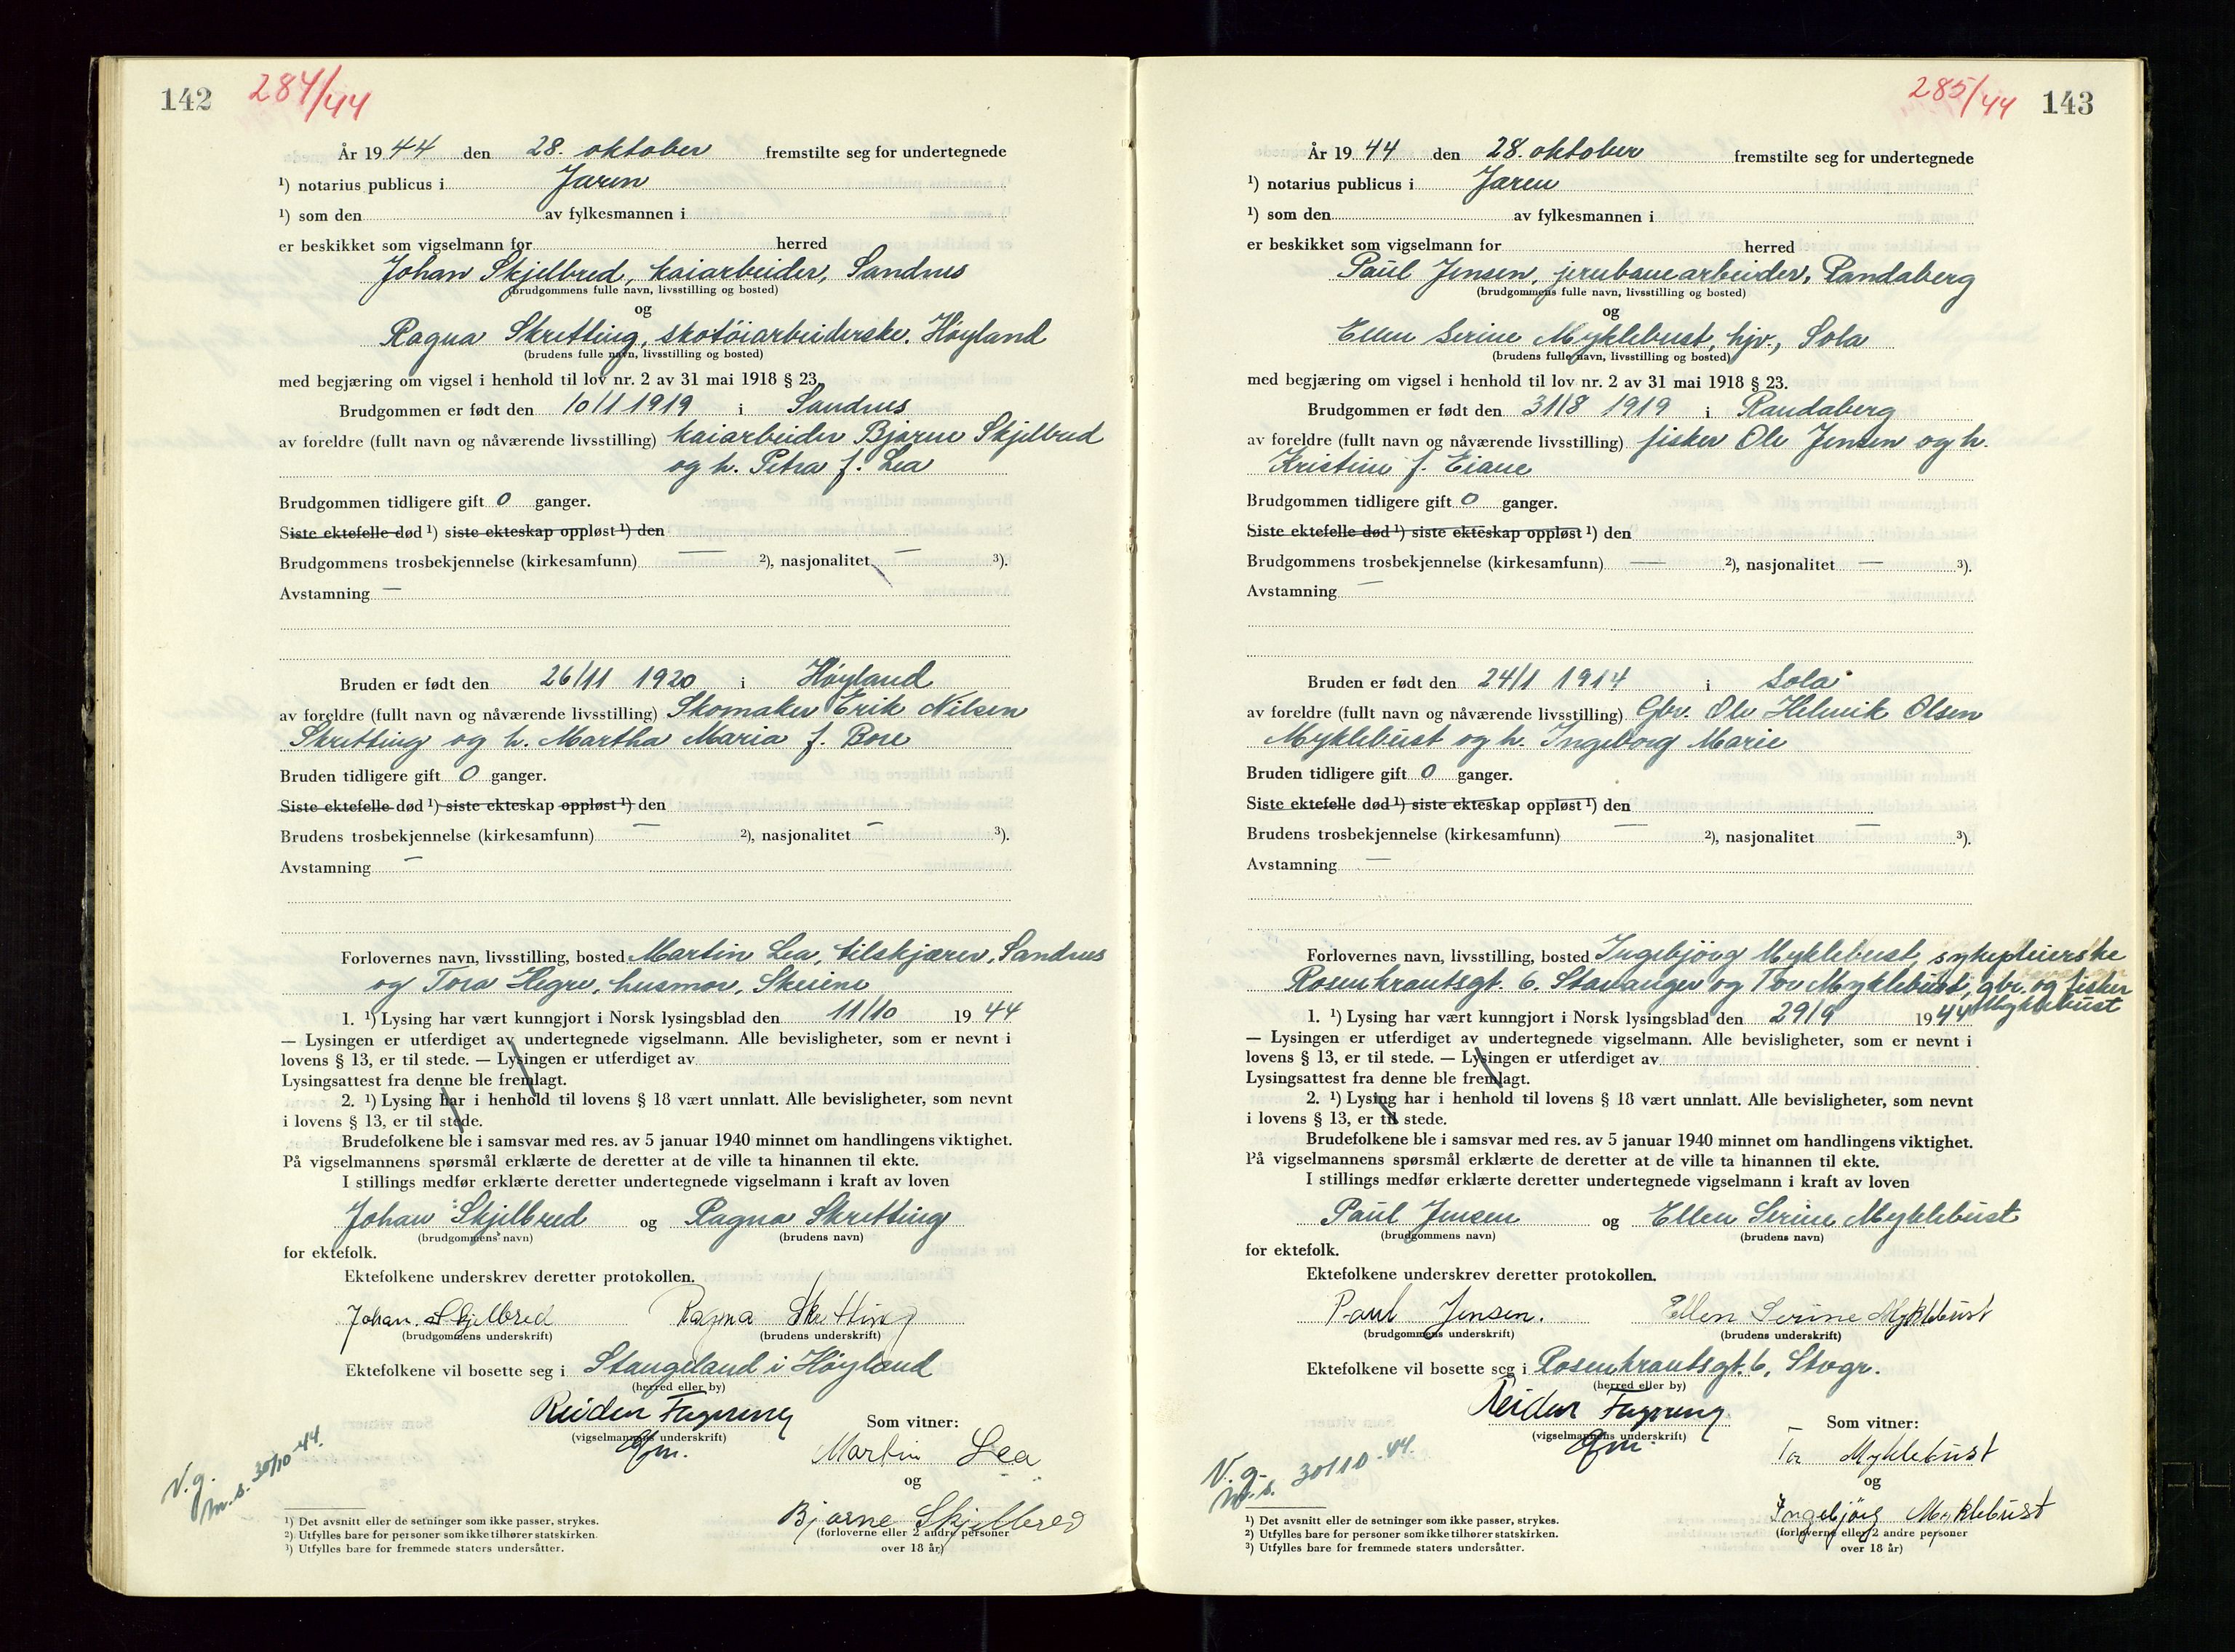 142 284/44
År 1944 den 28. oktober fremstilte seg for undertegnede
¹) notarius publicus i Jæren
¹) som den av fylkesmannen i
er beskikket som vigselmann for herred
Johan Skjelbred, kaiarbeider, Sandnes
(brudgommens fulle navn, livsstilling og bosted)
og
Ragna Skretting, skotöiarbeiderske, Høyland
(brudens fulle navn, livsstilling og bosted)
med begjæring om vigsel i henhold til lov nr. 2 av 31 mai 1918 § 23.
Brudgommen er født den 10/1 1919 i Sandnes
av foreldre (fullt navn og nåværende livsstilling) kaiarbeider Bjarne Skjelbred
og h. Petra f. Lea
Brudgommen tidligere gift 0 ganger.
Siste ektefelle død ¹) siste ekteskap oppløst ¹) den
Brudgommens trosbekjennelse (kirkesamfunn) — ²), nasjonalitet — ³).
Avstamning —
Bruden er født den 26/11 1920 i Høyland
av foreldre (fullt navn og nåværende livsstilling) Skomaker Erik Nilsen
Skretting og h. Martha Maria f. Bore
Bruden tidligere gift 0 ganger.
Siste ektefelle død ¹) siste ekteskap oppløst ¹) den
Brudens trosbekjennelse (kirkesamfunn) — ²), nasjonalitet — ³).
Avstamning —
Forlovernes navn, livsstilling, bosted Martin Lea, tilskjærer, Sandnes
og Tora Hegre, husmor, Skeiene
1. ¹) Lysing har vært kunngjort i Norsk lysingsblad den 11/10 1944
— Lysingen er utferdiget av undertegnede vigselmann. Alle bevisligheter, som er nevnt i
lovens § 13, er til stede. — Lysingen er utferdiget av
Lysingsattest fra denne ble fremlagt.
2. ¹) Lysing har i henhold til lovens § 18 vært unnlatt. Alle bevisligheter, som nevnt
i lovens § 13, er til stede.
Brudefolkene ble i samsvar med res. av 5 januar 1940 minnet om handlingens viktighet.
På vigselmannens spørsmål erklærte de deretter at de ville ta hinannen til ekte.
I stillings medfør erklærte deretter undertegnede vigselmann i kraft av loven
Johan Skjelbred og Ragna Skretting
(brudgommens navn) (brudens navn)
for ektefolk.
Ektefolkene underskrev deretter protokollen.
Johan Skjelbred Ragna Skretting
(brudgommens underskrift) (brudens underskrift)
Ektefolkene vil bosette seg i Stangeland i Høyland
(herred eller by)
Reidar
(vigselmannens underskrift)
Som vitner:
Martin Lea
og
Bjarne Skjelbred
(forloverne eller 2 andre personer
over 18 år)
V.g.
m.s. 30/10-44.
¹) Det avsnitt eller de setninger som ikke passer, strykes.
²) Utfylles bare for personer som ikke tilhører statskirken.
³) Utfylles bare for fremmede staters undersåtter.
285/44 143
År 1944 den 28. oktober fremstilte seg for undertegnede
¹) notarius publicus i Jæren
¹) som den av fylkesmannen i
er beskikket som vigselmann for herred
Paul Jensen, jernbanearbeider, Randaberg
(brudgommens fulle navn, livsstilling og bosted)
og
Ellen Serine Myklebust, hjv., Sola
(brudens fulle navn, livsstilling og bosted)
med begjæring om vigsel i henhold til lov nr. 2 av 31 mai 1918 § 23.
Brudgommen er født den 31/8 1919 i Randaberg
av foreldre (fullt navn og nåværende livsstilling) fisker Ole Jensen og h.
Kristine f. Eiane
Brudgommen tidligere gift 0 ganger.
Siste ektefelle død ¹) siste ekteskap oppløst ¹) den
Brudgommens trosbekjennelse (kirkesamfunn) — ²), nasjonalitet — ³).
Avstamning —
Bruden er født den 24/1 1914 i Sola
av foreldre (fullt navn og nåværende livsstilling) Gbr. Ole Helmik Olsen
Myklebust og h. Ingeborg Marie
Bruden tidligere gift 0 ganger.
Siste ektefelle død ¹) siste ekteskap oppløst ¹) den
Brudens trosbekjennelse (kirkesamfunn) — ²), nasjonalitet — ³).
Avstamning —
Forlovernes navn, livsstilling, bosted Ingebjørg Myklebust, sykepleierske
Rosenkrantsgt. 6. Stavanger og Tor Myklebust, gbr. og fisker
Myklebust
1. ¹) Lysing har vært kunngjort i Norsk lysingsblad den 29/9 1944
— Lysingen er utferdiget av undertegnede vigselmann. Alle bevisligheter, som er nevnt i
lovens § 13, er til stede. — Lysingen er utferdiget av
Lysingsattest fra denne ble fremlagt.
2. ¹) Lysing har i henhold til lovens § 18 vært unnlatt. Alle bevisligheter, som nevnt
i lovens § 13, er til stede.
Brudefolkene ble i samsvar med res. av 5 januar 1940 minnet om handlingens viktighet.
På vigselmannens spørsmål erklærte de deretter at de ville ta hinannen til ekte.
I stillings medfør erklærte deretter undertegnede vigselmann i kraft av loven
Paul Jensen og Ellen Serine Myklebust
(brudgommens navn) (brudens navn)
for ektefolk.
Ektefolkene underskrev deretter protokollen.
Paul Jensen. Ellen Serine Myklebust
(brudgommens underskrift) (brudens underskrift)
Ektefolkene vil bosette seg i Rosenkrantsgt. 6, Stvgr.
(herred eller by)
Reidar
(vigselmannens underskrift)
Som vitner:
Tor Myklebust
og
Ingebjörg Myklebust
(forloverne eller 2 andre personer
over 18 år)
V.g.
m.s. 30/10-44.
¹) Det avsnitt eller de setninger som ikke passer, strykes.
²) Utfylles bare for personer som ikke tilhører statskirken.
³) Utfylles bare for fremmede staters undersåtter.